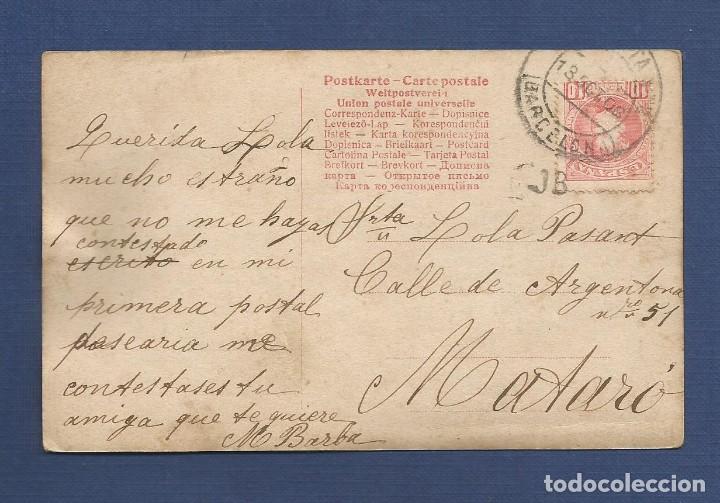 Postkarte – Carte postale
Weltpostverein
Union postale universelle
Correspondenz-Karte – Dopisnice
Levelező-Lap – Korespondenční
lístek – Karta korespondencyjna
Dopisnica – Briefkaart – Postcard
Cartolina Postale – Tarjeta Postal
Brefkort – Brevkort – Дописна
карта – Открытое письмо
Карта кореспонденційна
10 10
ESPAÑA
BARCELONA
JB
Querida Lola
mucho estraño
que no me hayas
contestado
escrito en mi
primera postal
desearia me
contestases tu
amiga que te quiere
M Barba
Srta Lola Pasant
Calle de Argentona
nro 51
Mataró
todocoleccion.net